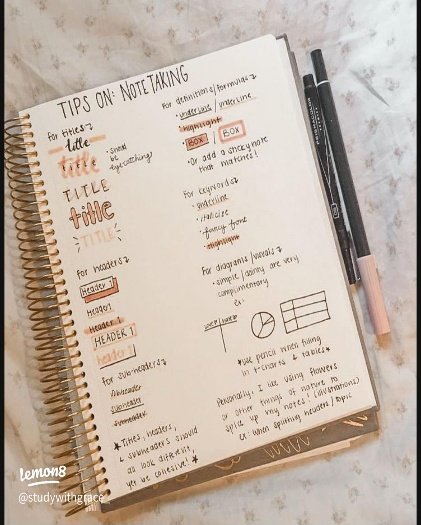 TIPS ON: NOTETAKING
for titles
title
title
TITLE
TITLE
title
TITLE
• should
be
eye-catching!
for headers
Header 1
Header
Header 1
HEADER 1
header 1
for subheaders
subheader
subheader
subheader
★Titles, headers,
& subheaders should
all look different,
yet be cohesive!★
for definitions/formulas
• underline / underline
• highlight
• BOX / BOX
• Or add a stickynote
that matches!
For keywords
• underline
• italicize
• fancy font
• highlight
For diagrams/visuals
• simple / dainty are very
complimentary
Ex:
★use pencil when filling
in t-charts & tables★
Personally, I like using flowers
or other things of nature to
spice up my notes! (illustrations)
ex: when splitting headers/topic
lemon8
@studywithgrace